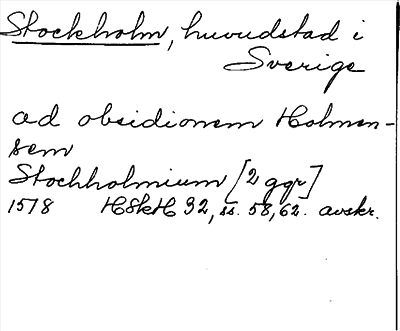 Stockholm, huvudstad i
Sverige
ad obsidionem Holmen-
sem
Stochholmium [2 ggr]
1518 HSkH 92, ss. 58, 62. avskr.